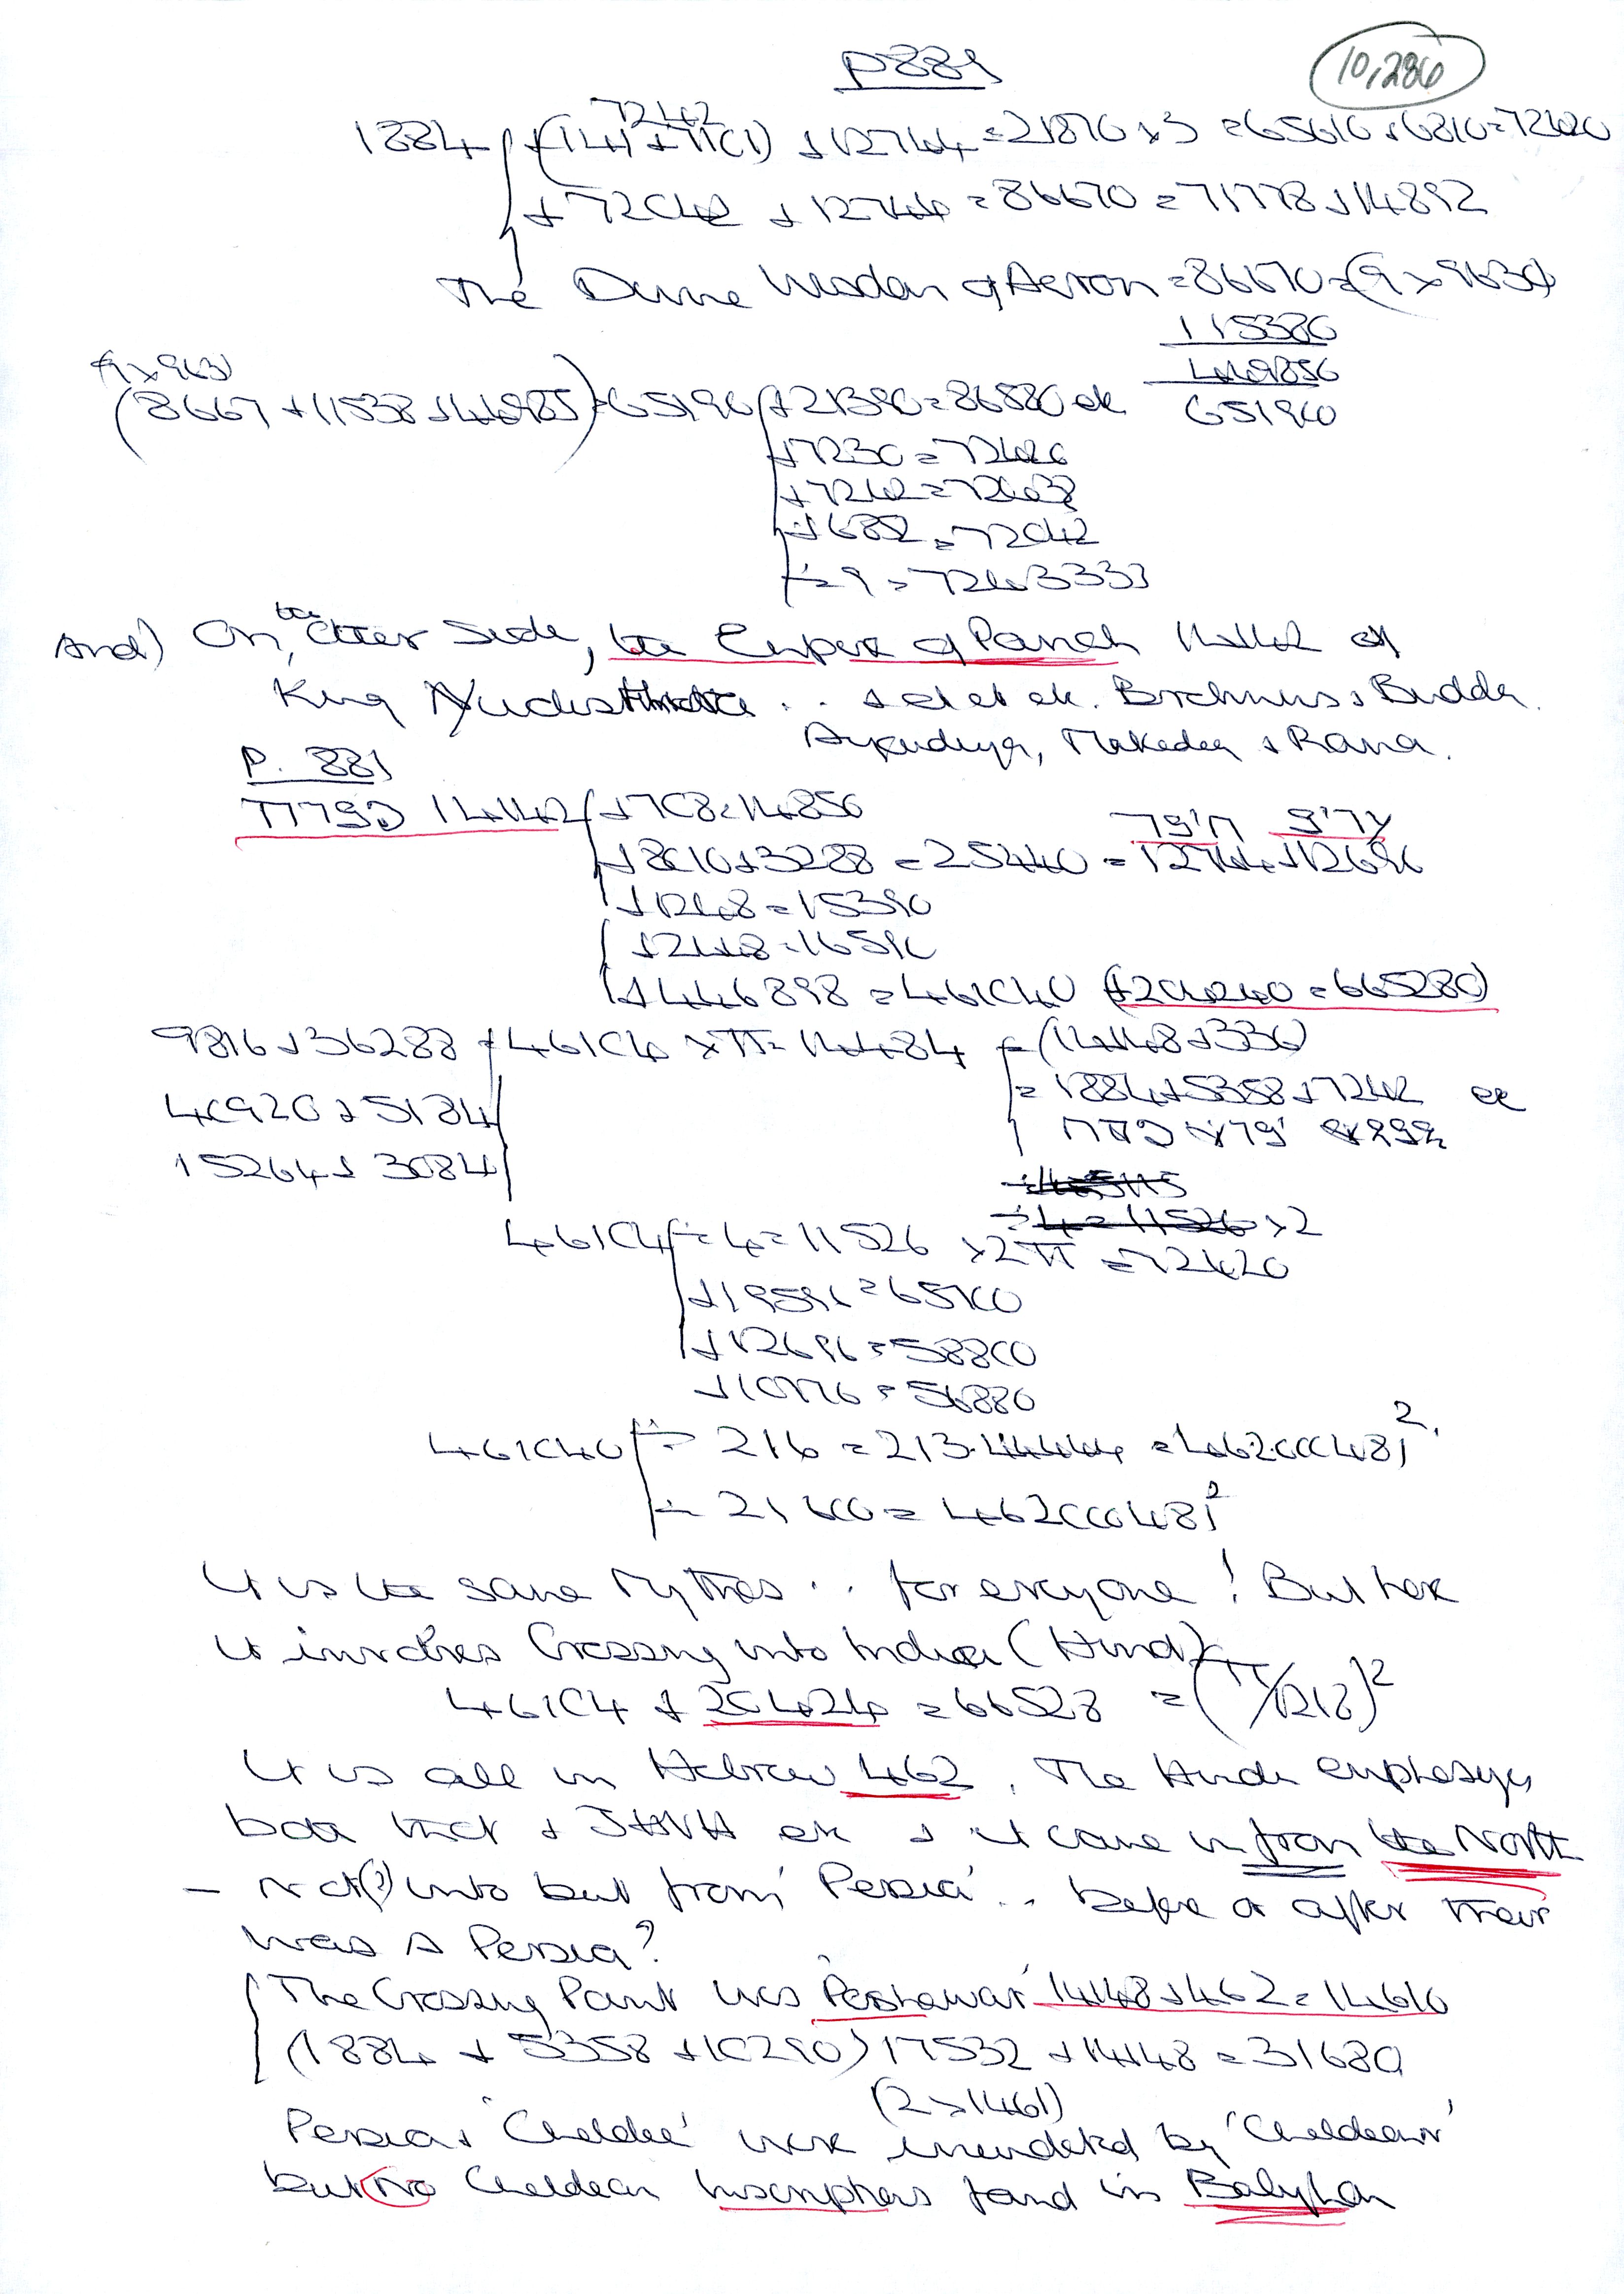 P889
10,286
72442
1884 + (141 + 7101) + 12744 = 21870 x 3 = 65610 + 6810 = 72420
+ 72042 + 12744 = 86670 = 71778 + 14892
The Divine Wisdom of Aeron = 86670 = (9 x 9630)
115380
449856
(9 x 963)
(8667 + 11538 + 44985) = 65190 + 21390 = 86580 etc
65190
+ 7230 = 72420
+ 7242 = 72432
+ 6852 = 72042
÷ 9 = 7243333
And) On, the other side, the Empire of Pandh 14142 of
King Yudisthira .. + et ek. Brahmins + Budda.
Ayoudiya, Mahadea + Rama.
P. 881
14142 + 708 = 14850
+ 8010 + 3288 = 25440 = 12744 + 12696
+ 1248 = 15390
+ 2448 = 16590
+ 446898 = 461040 (+ 204240 = 665280)
9816 + 36288 = 46104 x π = 14484 = (14148 + 336)
40920 + 5184
= 1884 + 5358 + 7242 etc
15264 + 3084
46104 ÷ 4 = 11526 x 2π = 72420
+ 19596 = 65700
+ 12696 = 58800
+ 10776 = 56880
461040 ÷ 216 = 213.4444 = 462000481²
÷ 21600 = 462000481²
It is the same Mythos .. for everyone! But here
it involves Crossing into India (Hind)
46104 + 20424 = 66528 = (π/1218)²
It is all in Hebrew 462. The Hindu emphasyes
both that + JHVH etc + it came in from the North
- Not(?) into but from 'Persia' .. before or after their
was a Persia?
The Crossing Point was Peshawar 14148 + 462 = 14610
(1884 + 5358 + 10290) 17532 + 14148 = 31680
(2 x 1461)
Persia + 'Chaldee' were inundated by 'Chaldeans'
but no Chaldean Inscriptions found in Babylon